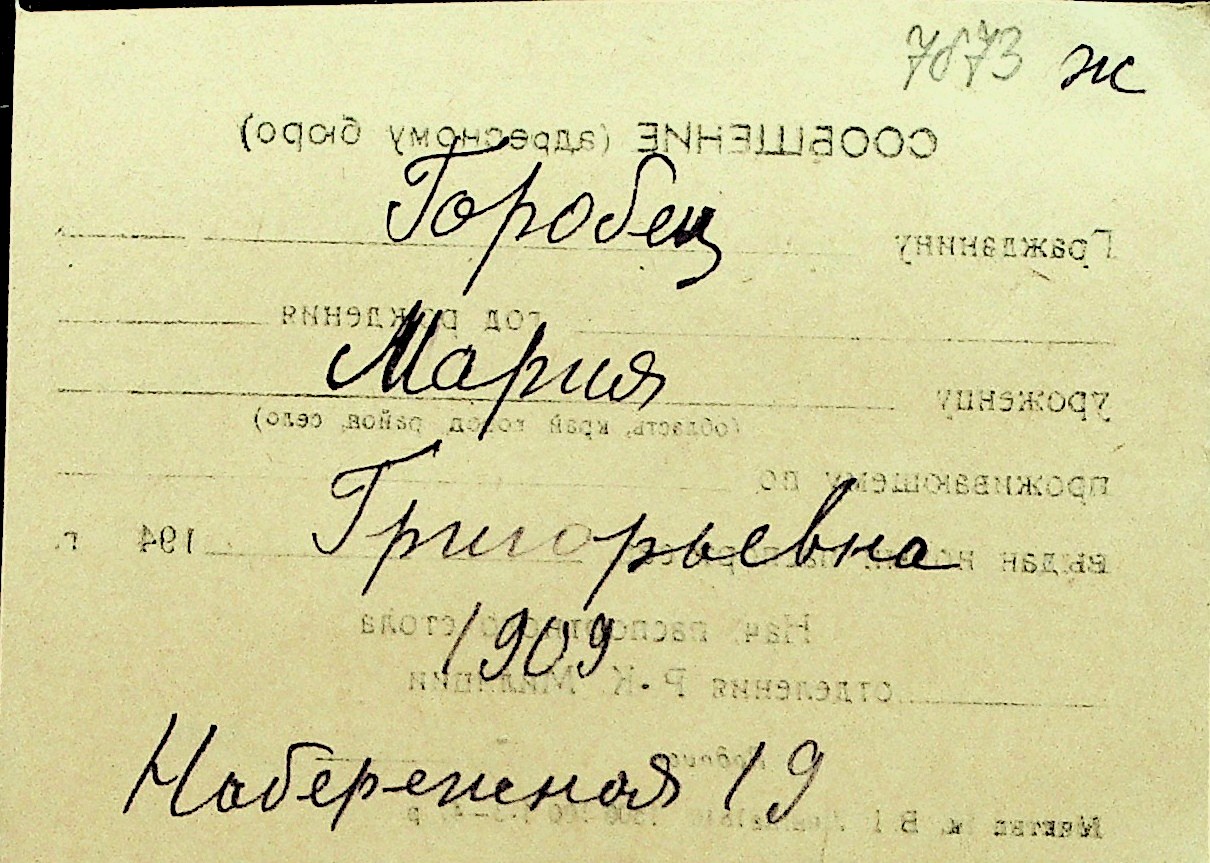 7673 ж
СООБЩЕНИЕ (адресному бюро)
Горобец
Гражданину
год рождения
Мария
уроженцу
(область, край город, район, село)
проживающему по
Григорьевна
выдан 194 г.
Нач. паспортного стола
1909
отделения Р.К. Милиции
Набережная 19